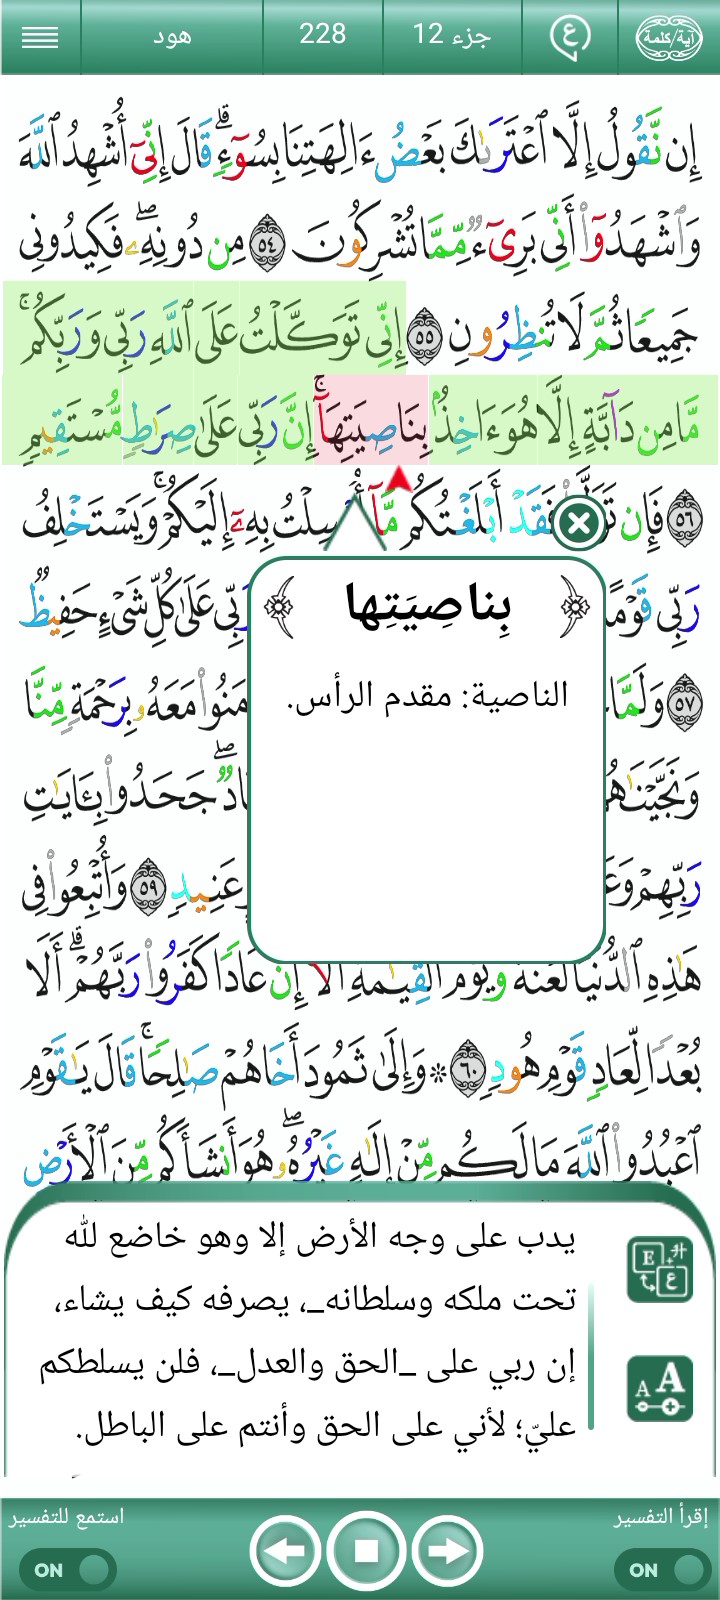 آية/كلمة
ع
جزء 12
228
هود
إِن نَّقُولُ إِلَّا ٱعْتَرَىٰكَ بَعْضُ ءَالِهَتِنَا بِسُوٓءٍۗ قَالَ إِنِّىٓ أُشْهِدُ ٱللَّهَ
وَٱشْهَدُوٓا۟ أَنِّى بَرِىٓءٌ مِّمَّا تُشْرِكُونَ ٥٤ مِن دُونِهِۦۖ فَكِيدُونِى
جَمِيعًا ثُمَّ لَا تُنظِرُونِ ٥٥ إِنِّى تَوَكَّلْتُ عَلَى ٱللَّهِ رَبِّى وَرَبِّكُمۚ
مَّا مِن دَآبَّةٍ إِلَّا هُوَ ءَاخِذٌۢ بِنَاصِيَتِهَآۚ إِنَّ رَبِّى عَلَىٰ صِرَٰطٍ مُّسْتَقِيمٍ
٥٦ فَإِن فَقَدْ أَبْلَغْتُكُم مَّآ أُرْسِلْتُ بِهِۦٓ إِلَيْكُمْۚ وَيَسْتَخْلِفُ
رَبِّى رَبِّى عَلَىٰ كُلِّ شَىْءٍ حَفِيظٌ
٥٧ وَلَمَّا مَعَهُۥ بِرَحْمَةٍ مِّنَّا
جَحَدُوا۟ بِـَٔايَٰتِ
عَنِيدٍ ٥٩ وَأُتْبِعُوا۟ فِى
هَٰذِهِ ٱلدُّنْيَا لَعْنَةً وَيَوْمَ ٱلْقِيَٰمَةِۗ أَلَآ إِنَّ عَادًا كَفَرُوا۟ رَبَّهُمْۗ أَلَا
بُعْدًا لِّعَادٍ قَوْمِ هُودٍ ٦٠ ۞ وَإِلَىٰ ثَمُودَ أَخَاهُمْ صَٰلِحًاۚ قَالَ يَٰقَوْمِ
ٱعْبُدُوا۟ ٱللَّهَ مَا لَكُم مِّنْ إِلَٰهٍ غَيْرُهُۥۖ هُوَ أَنشَأَكُم مِّنَ ٱلْأَرْضِ
﴿ بِناصِيَتِها ﴾
الناصية: مقدم الرأس.
يدب على وجه الأرض إلا وهو خاضع لله
تحت ملكه وسلطانه_، يصرفه كيف يشاء،
إن ربي على _الحق والعدل_، فلن يسلطكم
عليّ؛ لأني على الحق وأنتم على الباطل.
إقرأ التفسير
ON
استمع للتفسير
ON